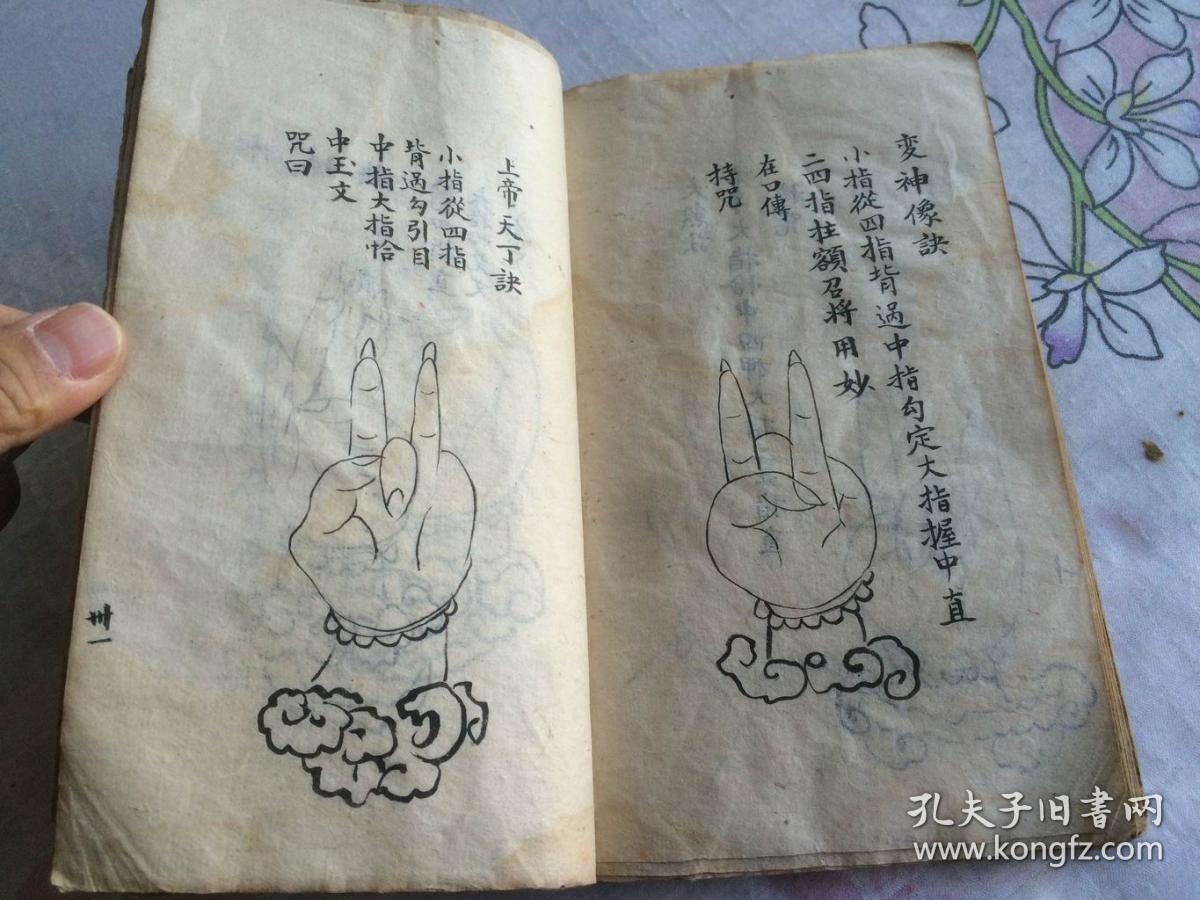 変神像訣
小指從四指背過中指勾定大指握中直
二四指拄額召將用妙
在口傳
持咒
上帝天丁訣
小指從四指
背過勾引目
中指大指恰
中玉文
咒曰
卅一
孔夫子旧書网
www.kongfz.com